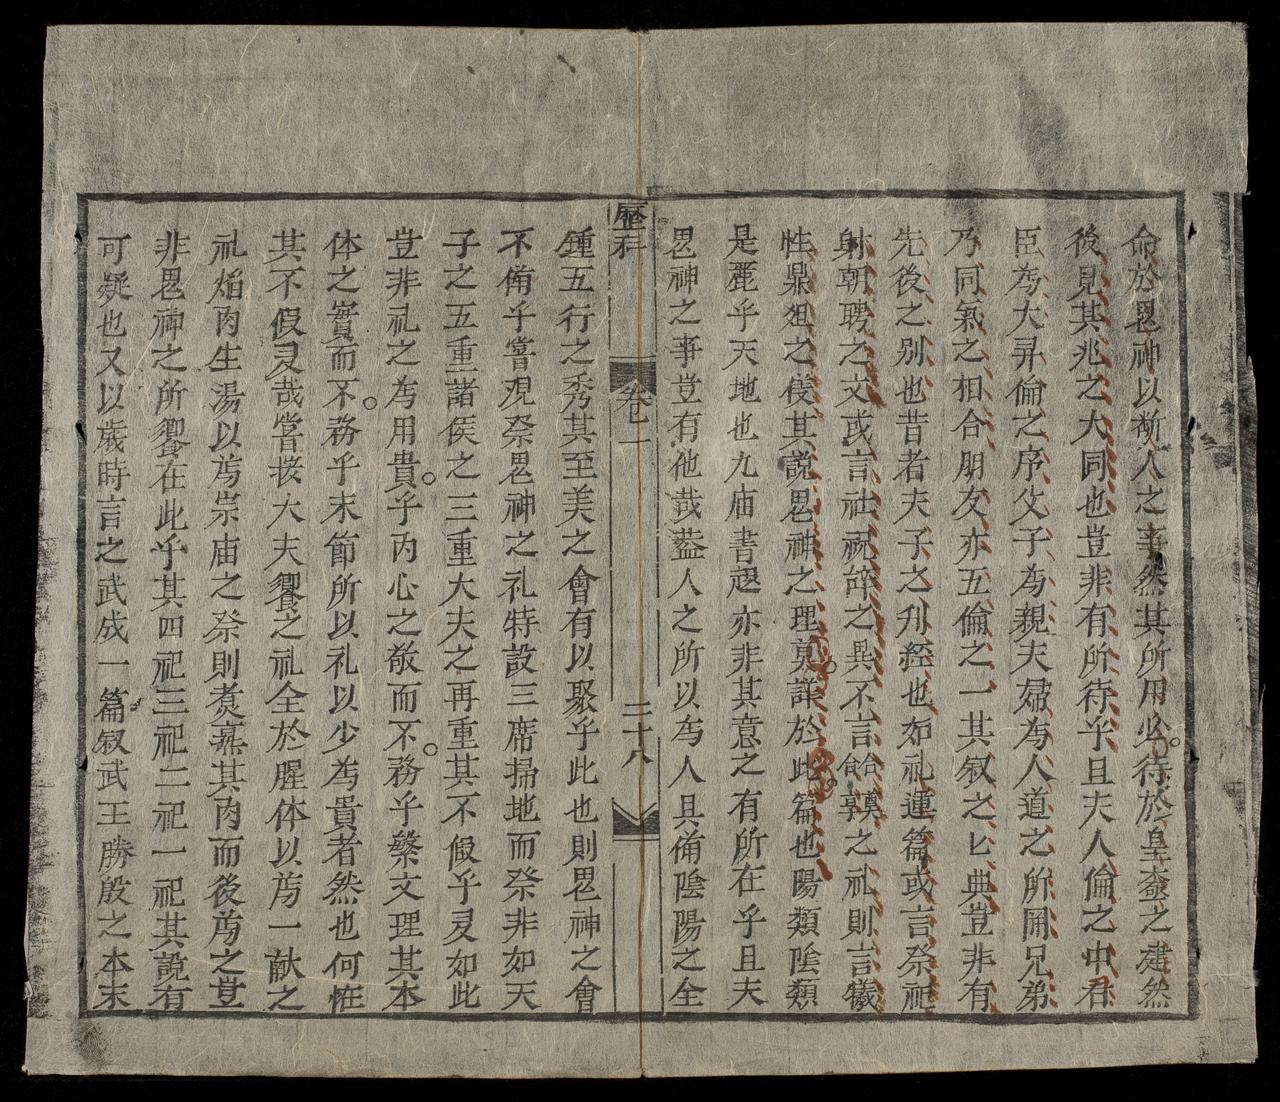 命於鬼神以漸人之事然其所用必待於皇極之建然
後見其兆之大同也豈非有所待乎且夫人倫之中君
臣為大昇倫之序父子為親夫婦為人道之所関兄弟
乃同氣之相合朋友亦五倫之一其叙之匕典豈非有
先後之別也昔者夫子之刋經也如礼運篇或言祭祀
射朝聘之文或言社祝辞之異不言合莫合享之礼則言犧
牲鼎俎之儀其說鬼神之理莫詳於此篇也陽類陰類
是麗乎天地也九庙書趄亦非其意之有所在乎且夫
鬼神之事豈有他哉盖人之所以為人具俻陰陽之全
歷科 卷一 二十八
鍾五行之秀其至美之會有以聚乎此也則鬼神之會
不俻乎嘗观祭鬼神之礼特設三席掃地而祭非如天
子之五重諸侯之三重大夫之再重其不假乎灵如此
豈非礼之為用貴乎內心之敬而不務乎繁文理其本
体之實而不務乎末節所以礼以少為貴者然也何恠
其不假灵哉嘗按大夫饗之礼全於腥体以爲一献之
礼焰肉生湯以爲崇庙之祭則煑𤎅其肉而後爲之豈
非鬼神之所饗在此乎其四祀三祀二祀一祀其說有
可疑也又以歲時言之武成一篇叙武王勝殷之本末